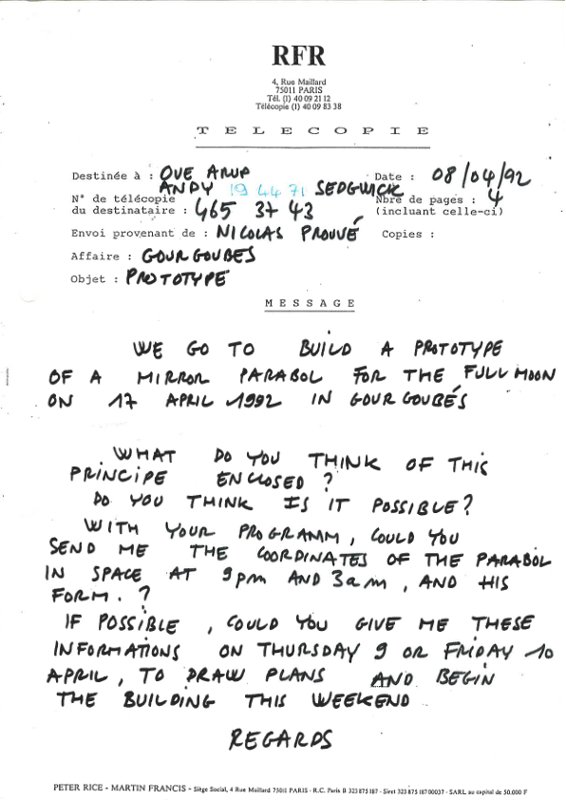 RFR
4, Rue Maillard
75011 PARIS
Tél. (1) 40 09 21 12
Télécopie (1) 40 09 83 38
TELECOPIE
Destinée à : OVE ARUP
Date : 08/04/92
ANDY 19 44 71 SEDGWICK
N° de télécopie
du destinataire : 465 37 43
Nbre de pages : 4
(incluant celle-ci)
Envoi provenant de : NICOLAS PROUVÉ
Copies :
Affaire : GOURGOUBES
Objet : PROTOTYPE
MESSAGE
WE GO TO BUILD A PROTOTYPE
OF A MIRROR PARABOL FOR THE FULL MOON
ON 17 APRIL 1992 IN GOURGOUBÉS
WHAT DO YOU THINK OF THIS
PRINCIPE ENCLOSED ?
DO YOU THINK IS IT POSSIBLE ?
WITH YOUR PROGRAMM, COULD YOU
SEND ME THE COORDINATES OF THE PARABOL
IN SPACE AT 9pm AND 3am, AND HIS
FORM. ?
IF POSSIBLE, COULD YOU GIVE ME THESE
INFORMATIONS ON THURSDAY 9 OR FRIDAY 10
APRIL, TO DRAW PLANS AND BEGIN
THE BUILDING THIS WEEKEND
REGARDS
PETER RICE - MARTIN FRANCIS - Siège Social, 4 Rue Maillard 75011 PARIS - R.C. Paris B 323 875 187 - Siret 323 875 187 00037 - SARL au capital de 50.000 F